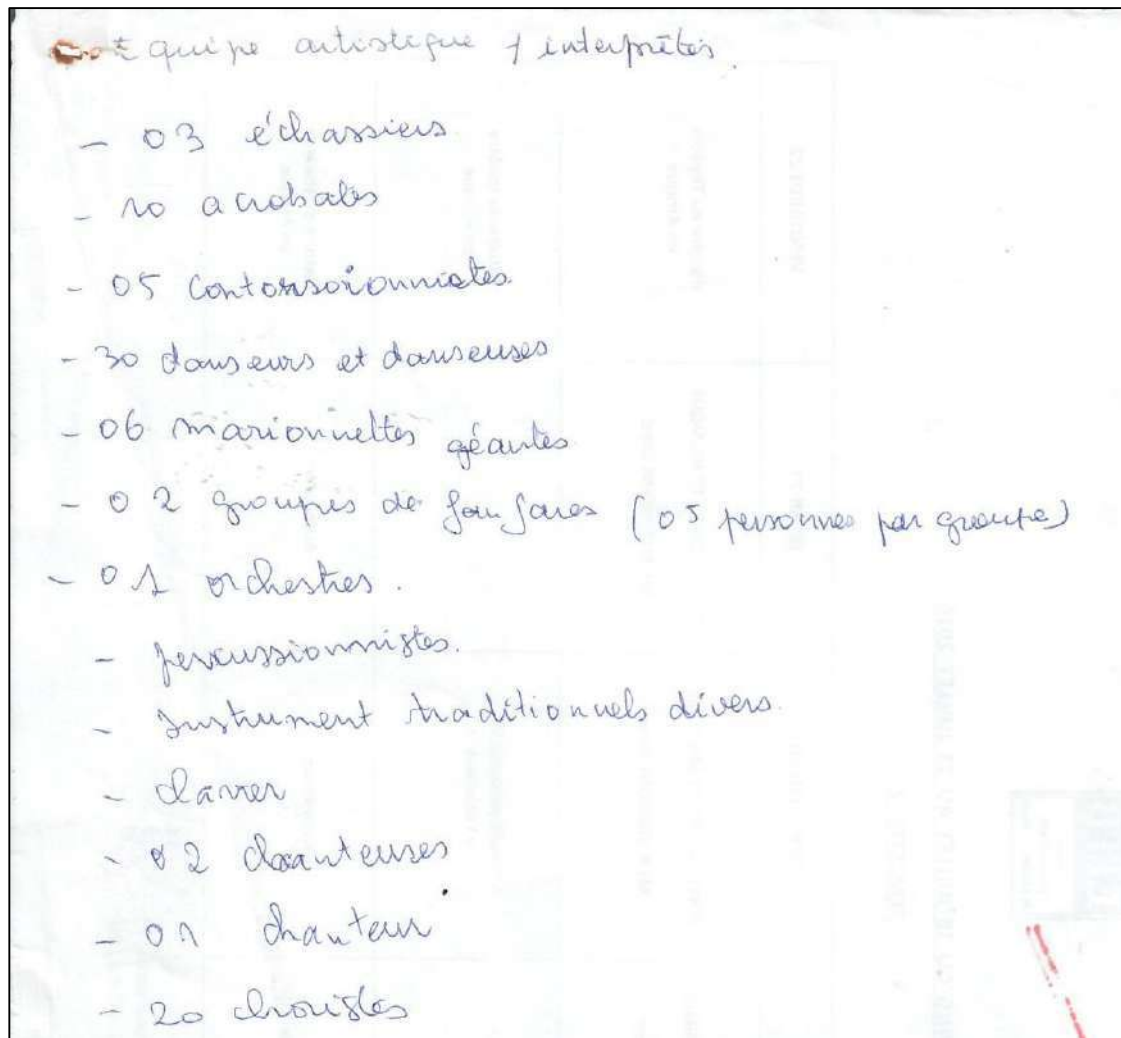 Equipe artistique / interprêtes.
- 03 échassiers
- 10 acrobates
- 05 contorsoionnistes.
- 30 danseurs et danseuses
- 06 marionnettes géantes
- 02 groupes de fanfares (05 personnes par groupe)
- 01 orchestres.
- percussionnistes.
- Instrument traditionnels divers.
- clavier
- 02 chanteuses
- 01 chanteur
- 20 choristes